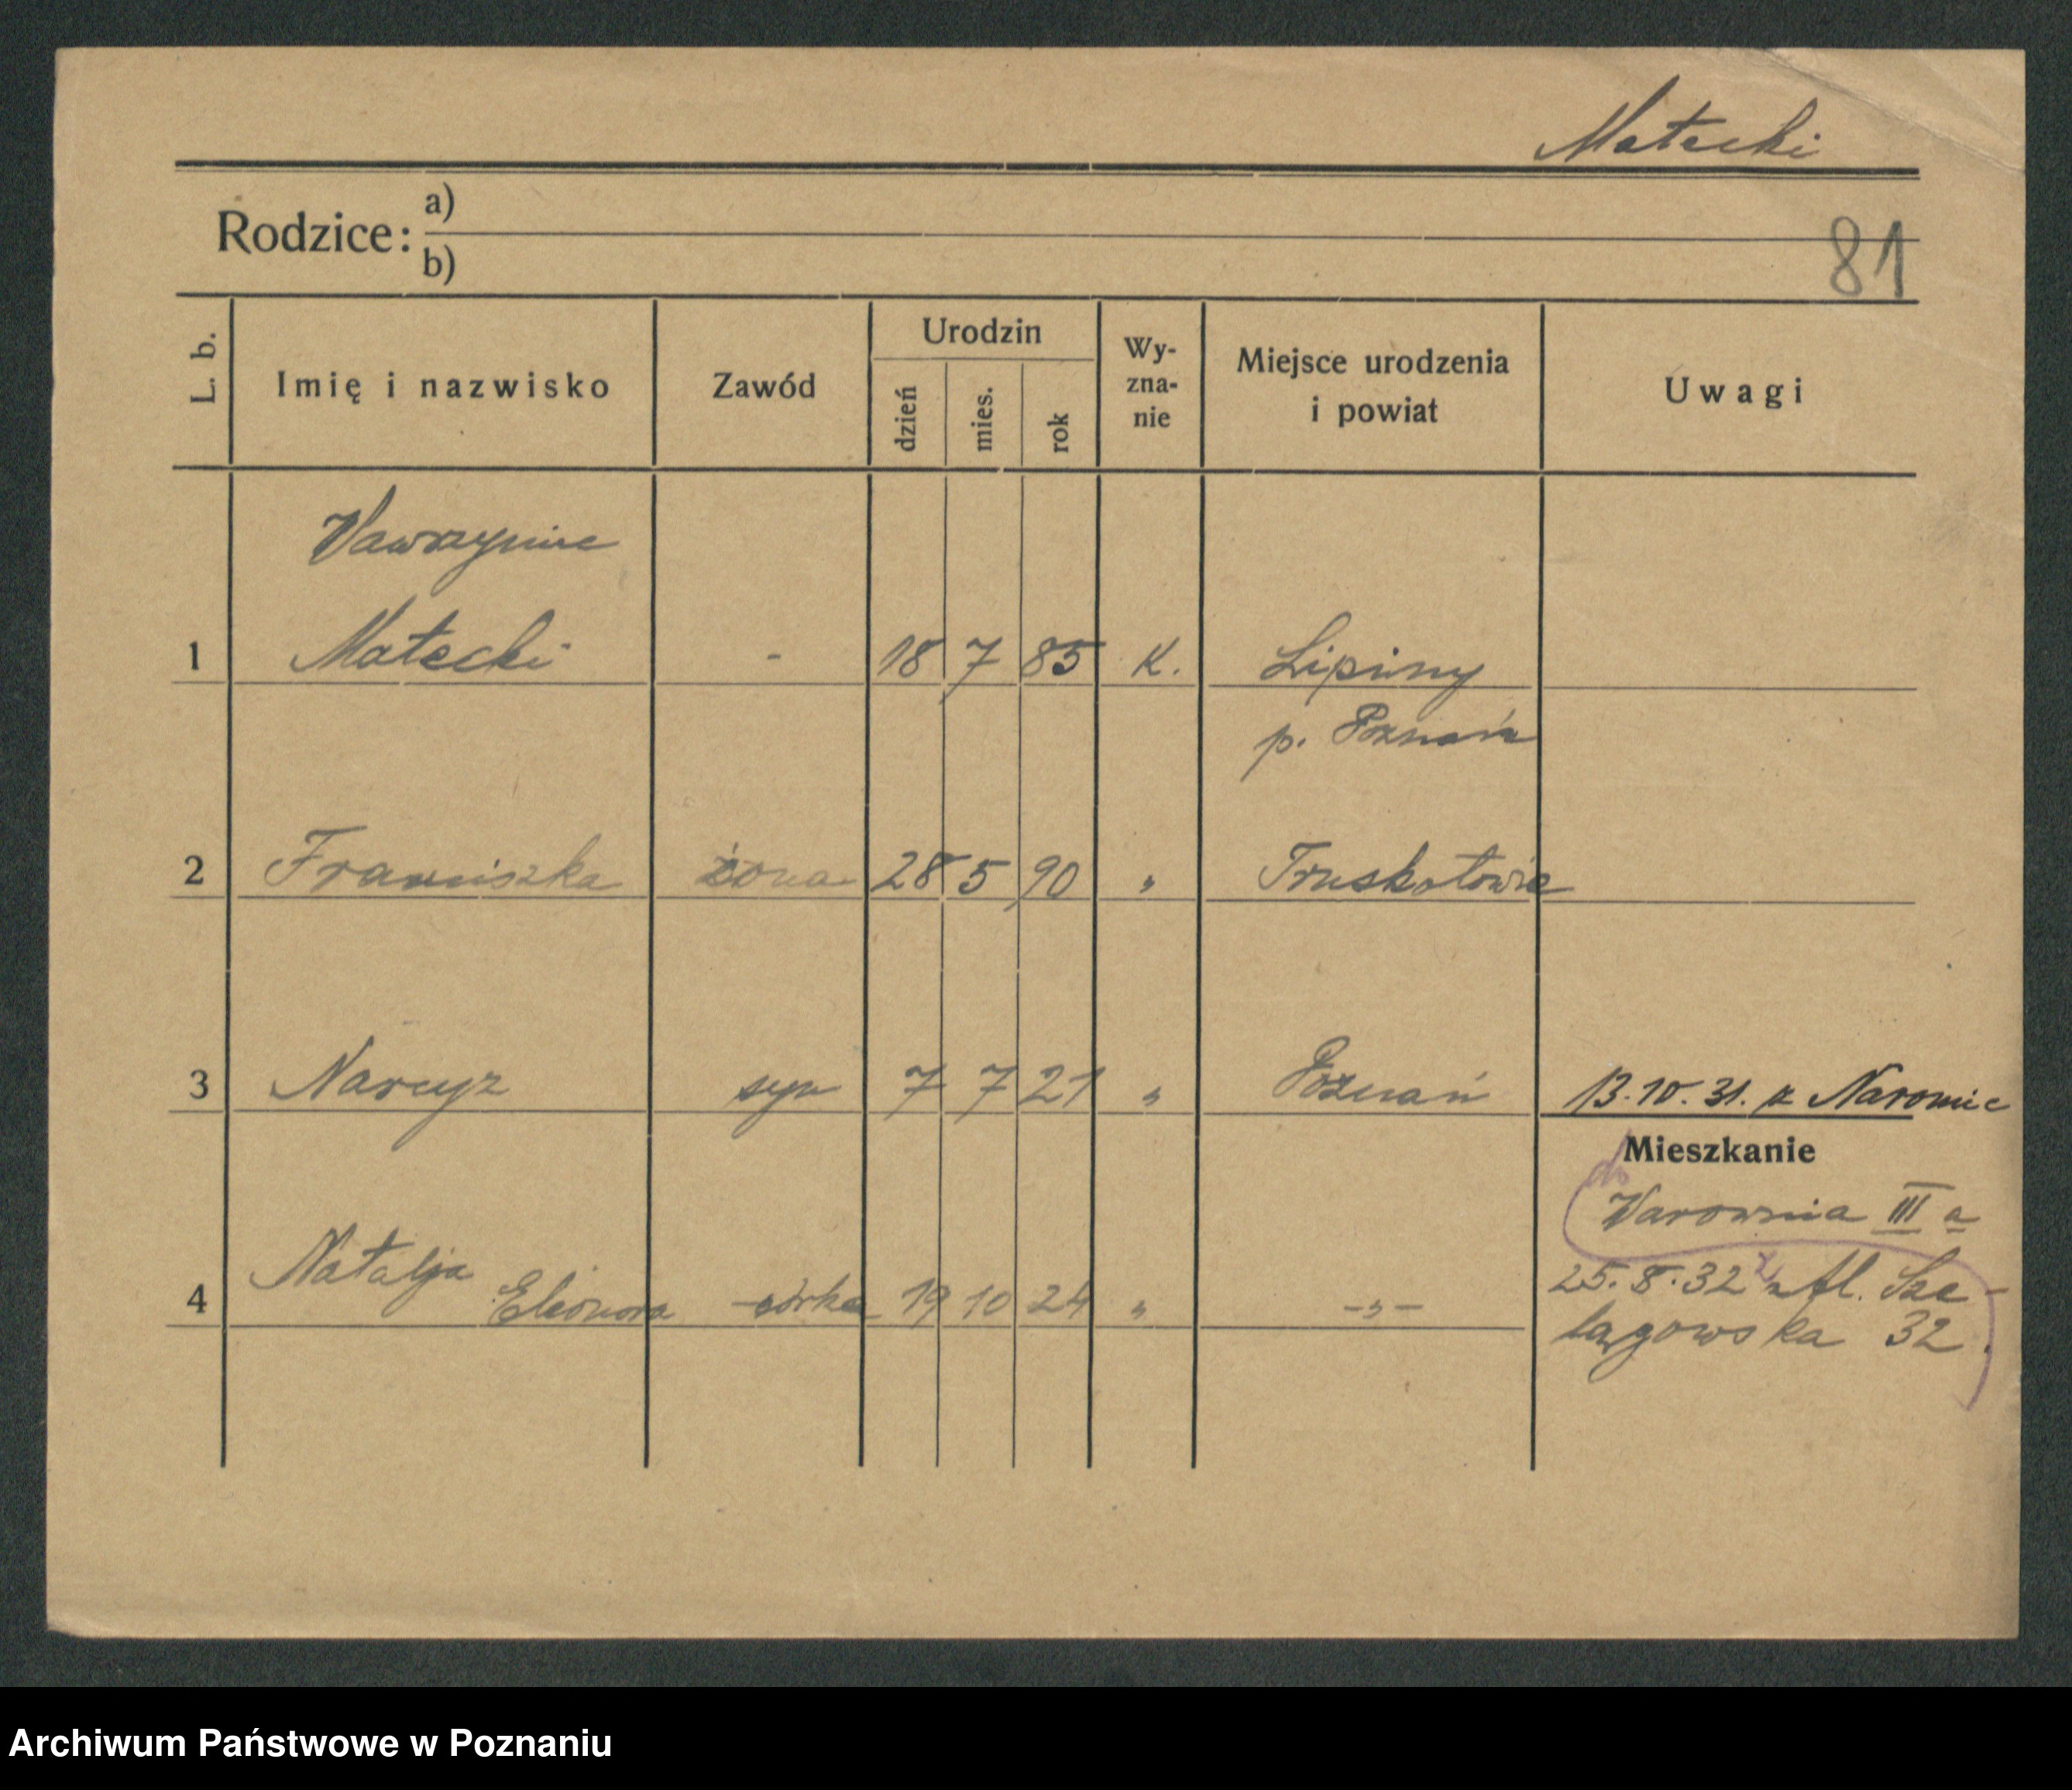 Małecki
Rodzice: a)
b)
81
L. b. Imię i nazwisko Zawód Urodzin dzień mies. rok Wy-zna-nie Miejsce urodzenia i powiat Uwagi
Wawrzyniec
1 Małecki - 18 7 85 K. Lipiny
p. Poznań
2 Franciszka żona 28 5 90 " Truskotowie
3 Narcyz syn 7 7 21 " Poznań 13.10.31. z Naromic
Mieszkanie
do
Warownia III a
4 Natalja Eleonora córka 19 10 24 " -"- 25.8.32 z Al. Sze-
lągowska 32.
Archiwum Państwowe w Poznaniu